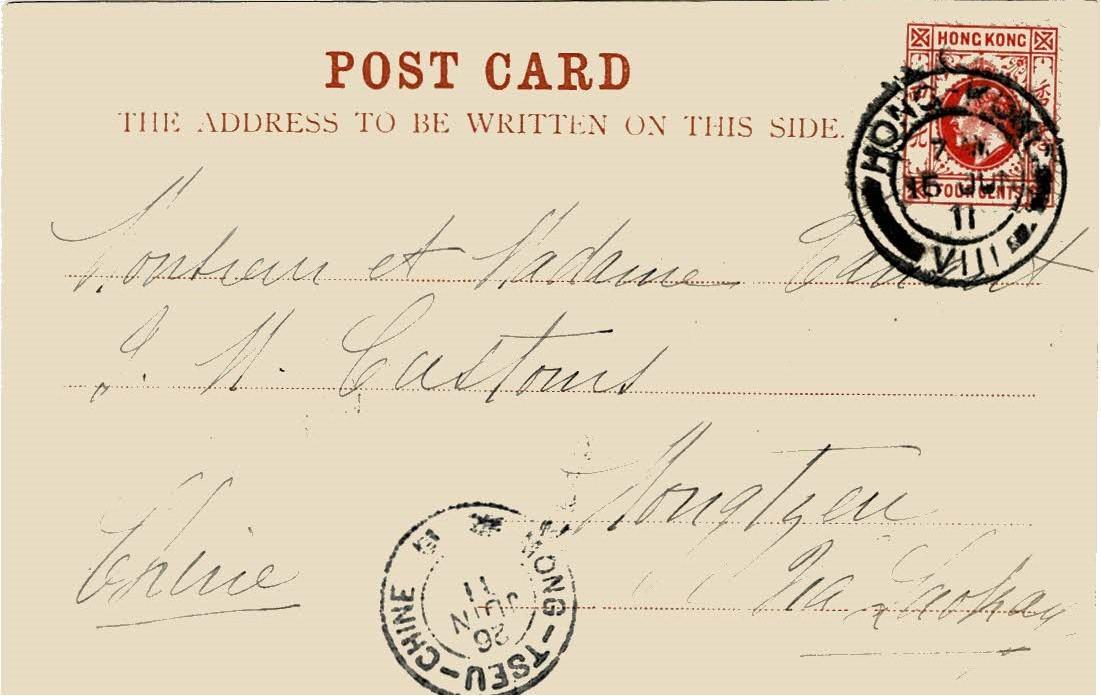 HONG KONG
POST CARD
THE ADDRESS TO BE WRITTEN ON THIS SIDE.
HONG KONG
7
15 JUN
11
VIII
FOUR CENTS
Monsieur et Madame
I. M. Customs
Mongtzeu
Chine
Via Laokay
MONG-TSEU-CHINE
26
JUIN
11